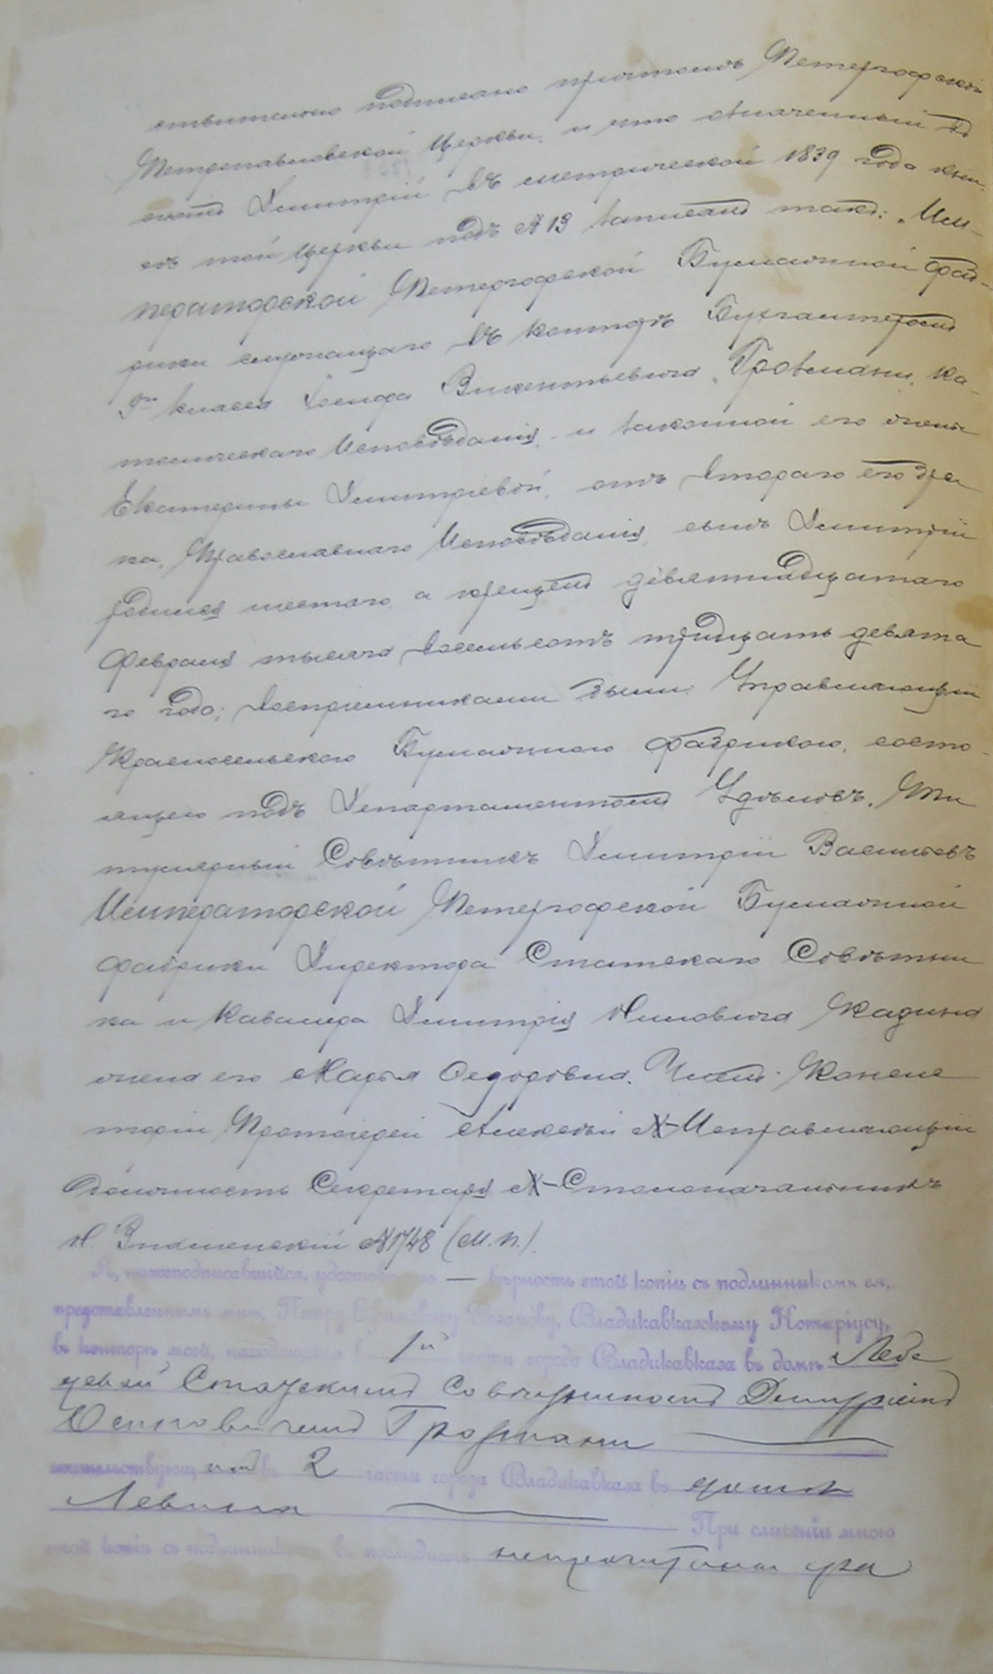 ствительно подписано причтомъ Петергофской
Петропавловской Церкви, и что означенный въ
ономъ Димитрій въ метрической 1839 года кни-
гѣ той Церкви подъ № 13 записанъ такъ: „Им-
ператорской Петергофской Бумажной фаб-
рики служащаго въ конторѣ Бухгалтеромъ
9го класса Іосифа Викентьевича Грозмани, ка-
толическаго Исповѣданія, и законной его жены
Екатерины Димитріевой, отъ втораго его бра
ка, Православнаго Исповѣданія, сынъ Димитрій
родился шестаго а крещенъ девятнадцатаго
Февраля тысяча восемьсотъ тридцать девята
го года; Воспріемниками были: Управляющій
Красносельскою Бумажною фабрикою, состо-
ящею подъ Департаментомъ Удѣловъ, Ти
тулярный Совѣтникъ Димитрій Васильевъ
Императорской Петергофской Бумажной
фабрики Директора Статскаго Совѣтни
ка и Кавалера Димитрія Ниловича Кадина
жена его Марья Ѳедоровна. Членъ Консис
торіи Протоіерей Алексѣй N Исправляющій
должность Секретаря N Столоначальникъ
Н. Знаменскій №1748 (М.П.).
Я, нижеподписавшійся, удостовѣряю — вѣрность этой копіи съ подлинникомъ ея,
представленнымъ мнѣ, Петру Владикавказскому Нотаріусу,
въ конторѣ моей, находящейся въ 1й части города Владикавказа въ домѣ Лебе
девой Статскимъ Совѣтникомъ Димитріемъ
Осиповичемъ Грозмани
жительствующимъ во 2 части города Владикавказа въ домѣ
Левина При сличеніи мною
этой копіи съ подлинникомъ въ послѣднемъ